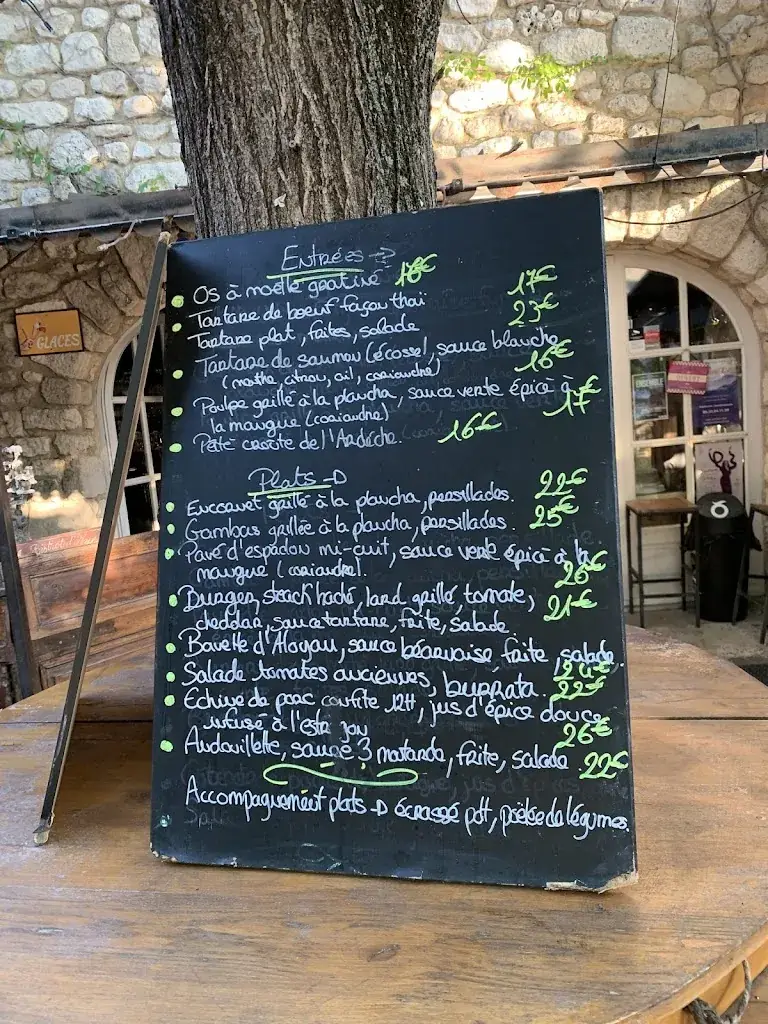 Entrées →
Os à moëlle gratiné 16€
Tartare de bœuf façon thaï 17€
Tartare plat, frites, salade 23€
Tartare de saumon (écosse), sauce blanche
(menthe, citron, ail, coriandre) 16€
Poulpe grillé à la plancha, sauce verte épicé à
la mangue (coriandre) 17€
Pâté croûte de l'Ardèche. 16€
Plats →
Encornet grillé à la plancha, persillades. 22€
Gambas grillée à la plancha, persillades. 25€
Pavé d'espadon mi-cuit, sauce verte épicé à la
mangue (coriandre). 26€
Burger, steack haché, lard grillé, tomate,
cheddar, sauce tartare, frite, salade 21€
Bavette d'Aloyau, sauce béarnaise, frite, salade.
24€
Salade tomates anciennes, burrata. 22€
Echine de porc confite 12H, jus d'épice douce
infusé à l'estragon 26€
Andouillette, sauce 3 moutarde, frite, salade 22€
Accompagnement plats → écrassé pdt, poêlée de légumes.
GLACES